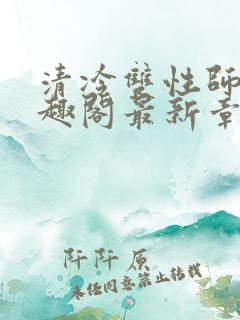 清冷雙性師
趣閣最新章
阡阡原
未经同意禁止转载